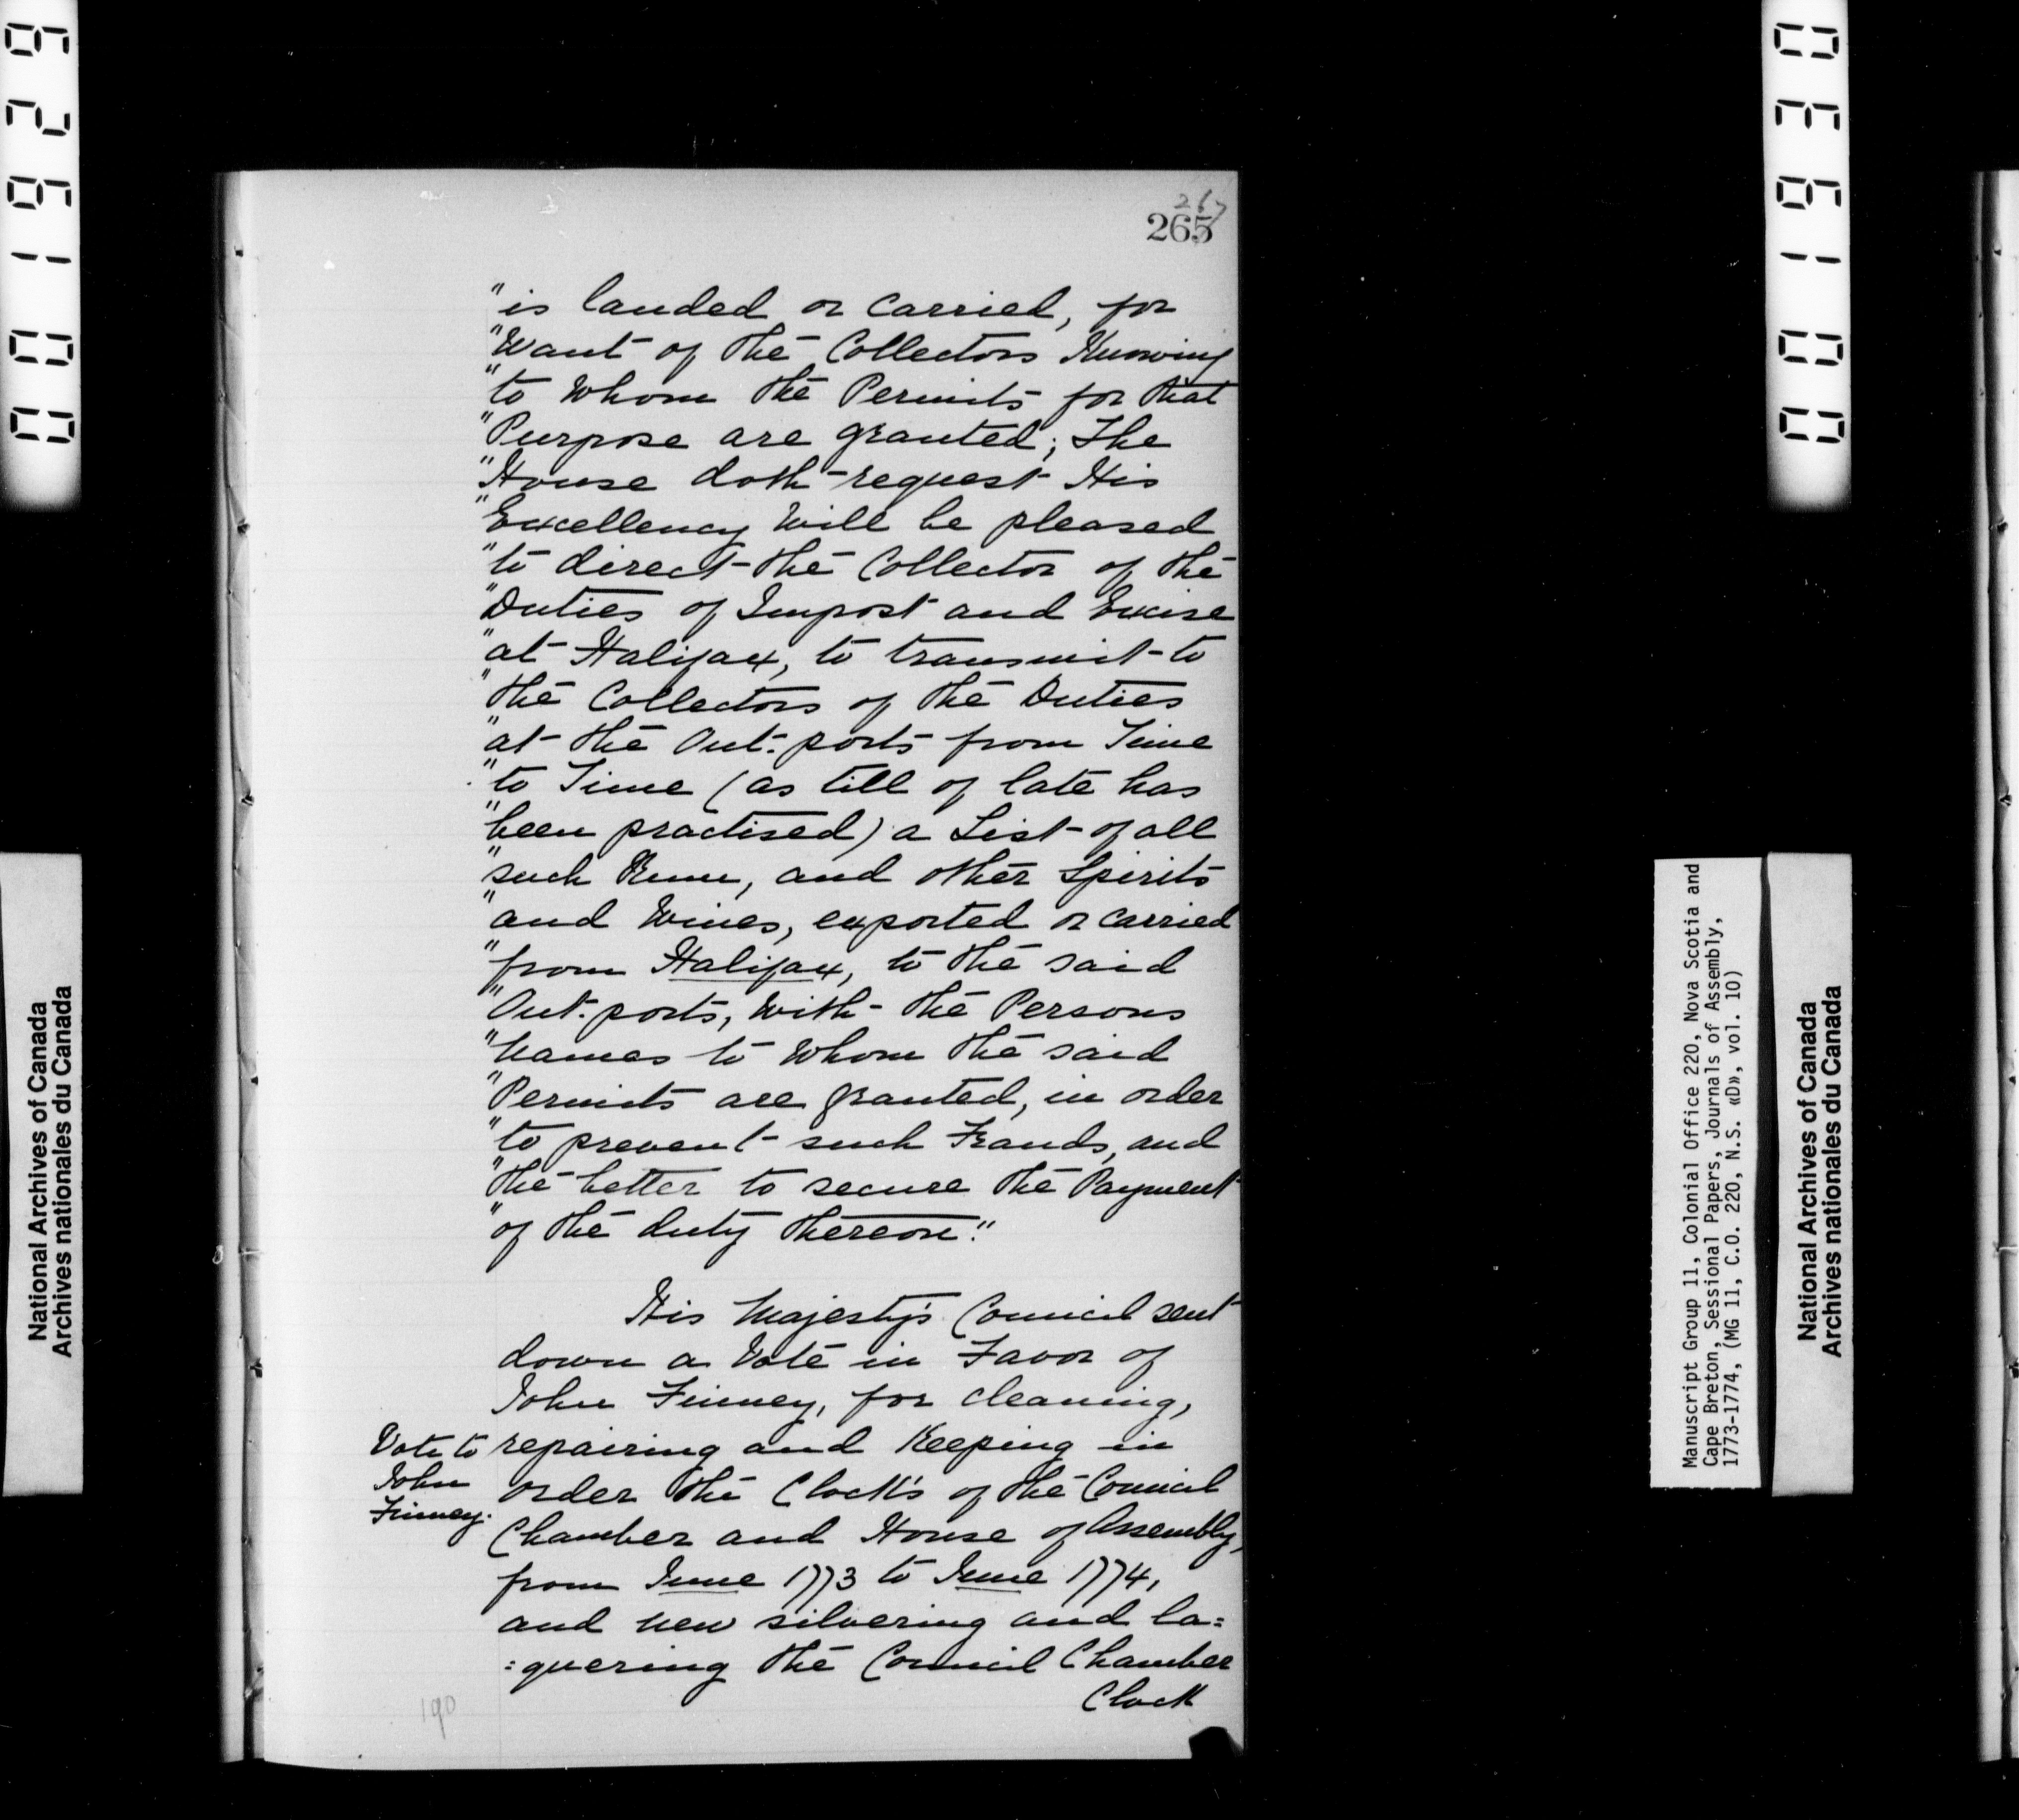 267
265
"is landed or carried, for
"Want of the Collectors Knowing
"to whom the Permits for that
"Purpose are granted; The
"House doth request His
"Excellency will be pleased
"to direct the Collector of the
"Duties of Impost and Excise
"at Halifax, to transmit to
"the Collectors of the Duties
"at the Out-ports from Time
"to Time (as till of late has
"been practised) a List of all
"such Rum, and other Spirits
"and Wines, exported or carried
"from Halifax, to the said
"Out-ports, with the Persons
"Names to whom the said
"Permits are granted, in order
"to prevent such Frauds, and
"the better to secure the Payment
"of the duty thereon."
His Majesty's Council sent
down a Vote in Favor of
John Finney, for cleaning,
repairing and Keeping in
order the Clock's of the Council
Chamber and House of Assembly,
from June 1773 to June 1774,
and new silvering and la=
=quering the Council Chamber
Clock
Vote to
John
Finney.
190
001629
National Archives of Canada
Archives nationales du Canada
001630
Manuscript Group 11, Colonial Office 220, Nova Scotia and
Cape Breton, Sessional Papers, Journals of Assembly,
1773-1774, (MG 11, C.O. 220, N.S. «D», vol. 10)
National Archives of Canada
Archives nationales du Canada